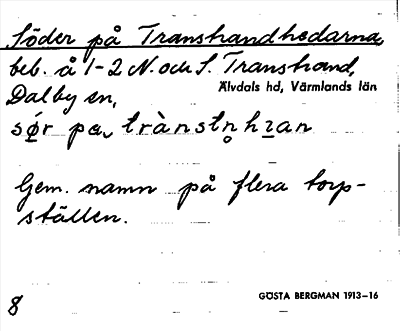 Söder på Transtrandhedarna,
beb. å 1-2 N. och S. Transtrand,
Dalby sn,
Älvdals hd, Värmlands län
Gem. namn på flera torp-
ställen.
GÖSTA BERGMAN 1913-16
8